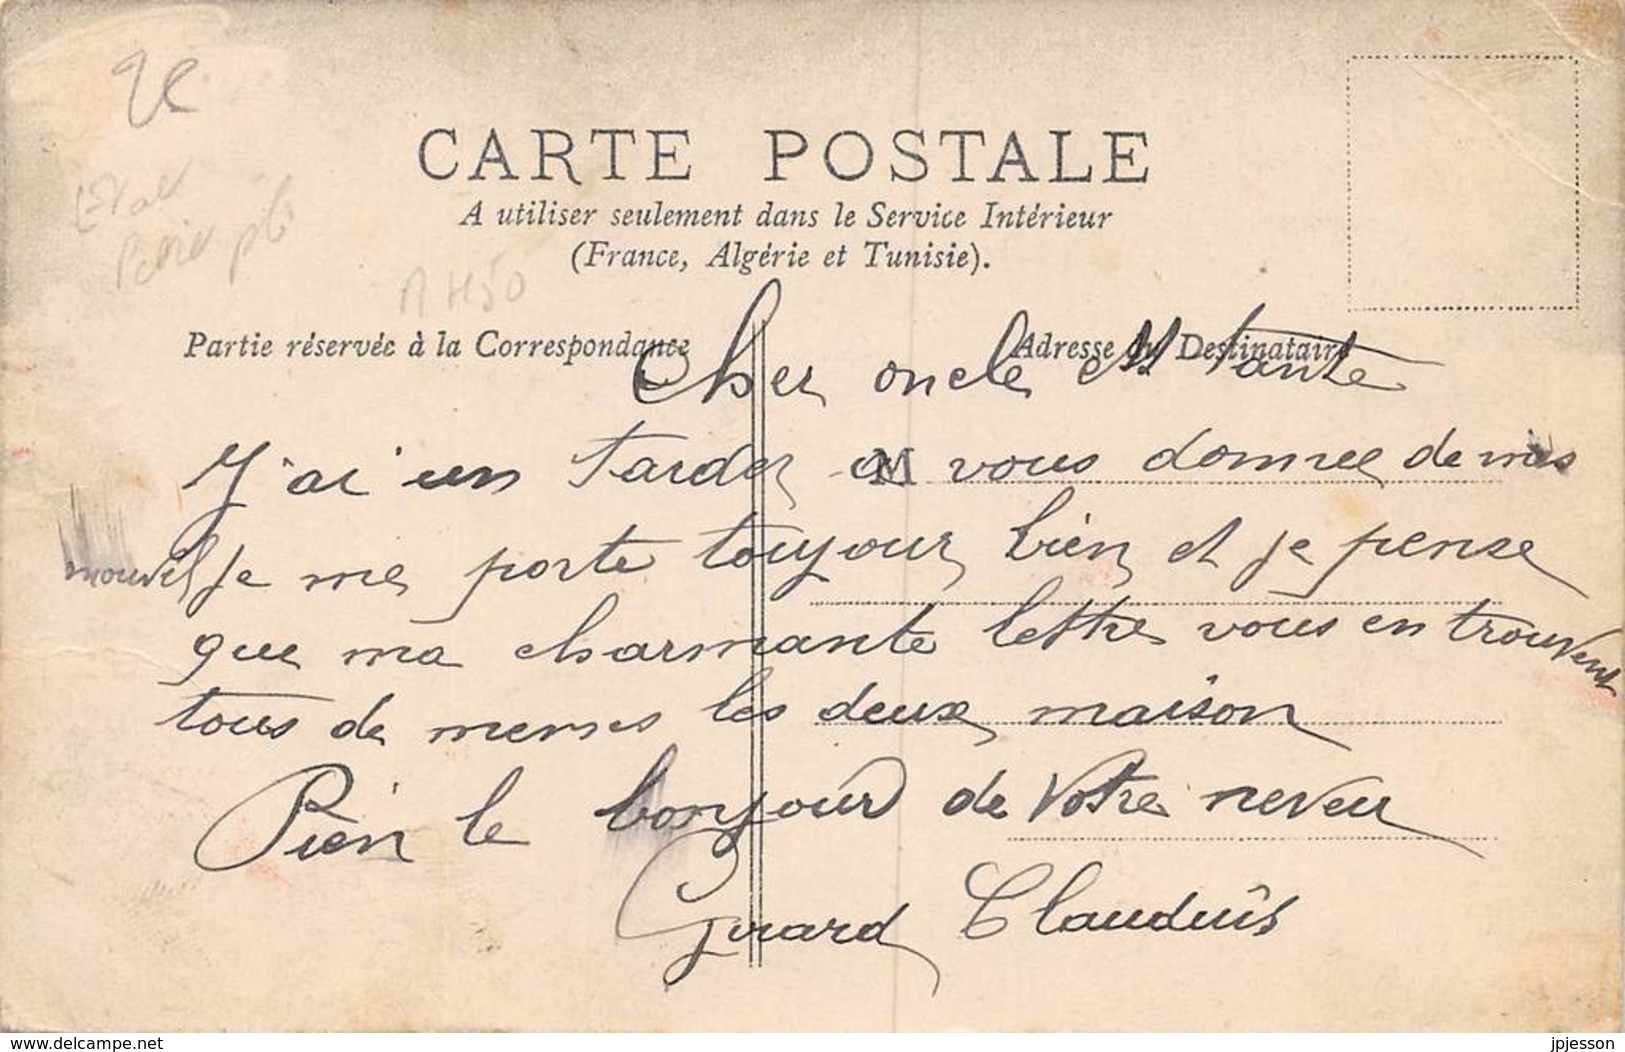 CARTE POSTALE
A utiliser seulement dans le Service Intérieur
(France, Algérie et Tunisie).
Partie réservée à la Correspondance
Adresse du Destinataire
Cher oncle et tante
J'ai un tarder a vous donnee de mes
nouvel je me porte toujour bien et je pense
que ma charmante lettre vous en trouvent
tous de memes les deux maison
Rien le bonjour de votre neveu
Girard Claudius
M
www.delcampe.net
jpjesson